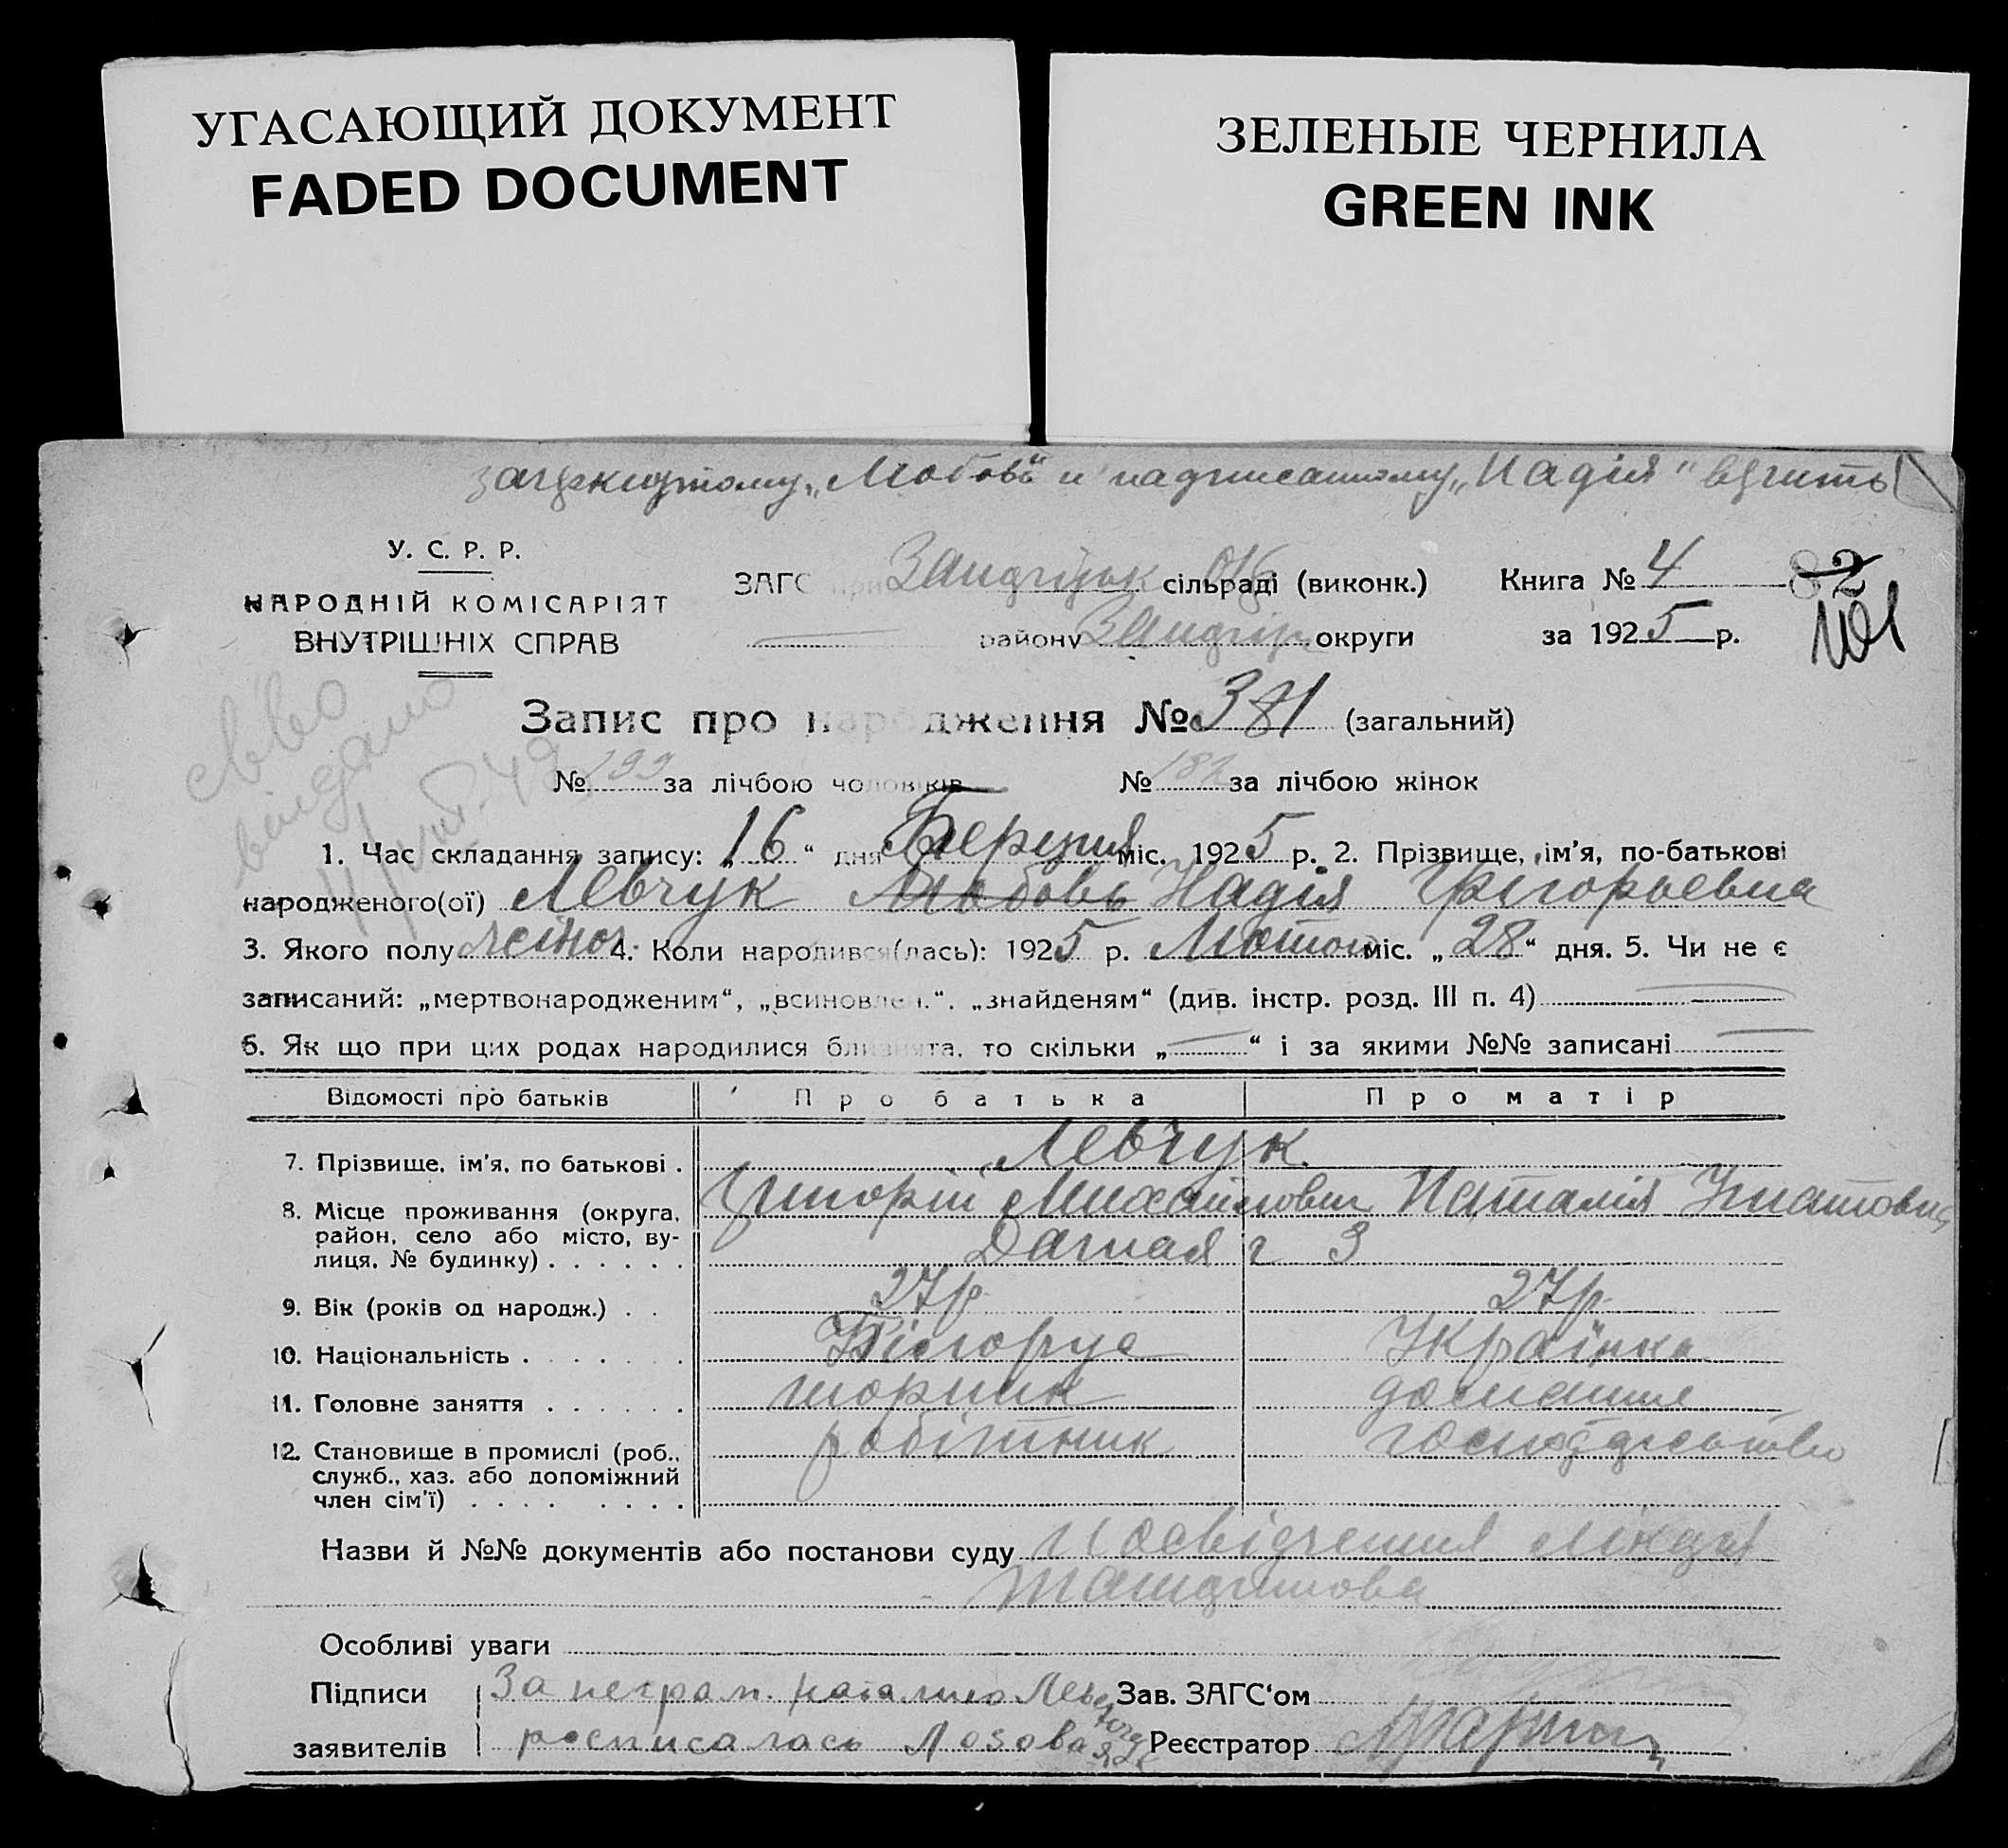 УГАСАЮЩИЙ ДОКУМЕНТ
FADED DOCUMENT
ЗЕЛЕНЫЕ ЧЕРНИЛА
GREEN INK
„Любовь“ и надписанному „Надія“ верить
У. С. Р. Р.
НАРОДНІЙ КОМІСАРІЯТ
ВНУТРІШНІХ СПРАВ
ЗАГС при сільраді (виконк.)
району округи
Книга № 4
82
за 1925 р.
101
Запис про народження № 381 (загальний)
№ 199 за лічбою чоловіків № 182 за лічбою жінок
св-во
видано
1. Час складання запису: „16“ дня Березня міс. 1925 р. 2. Прізвище, ім'я, по-батькові
народженого(ої) Левчук Любовь Надія Григорьевна
3. Якого полу жіноч. 4. Коли народився(лась): 1925 р. Лютого міс. „28“ дня. 5. Чи не є
записаний: „мертвонародженим“, „всиновлен.“. „знайденям“ (див. інстр. розд. III п. 4)
6. Як що при цих родах народилися близнята, то скільки „—“ і за якими №№ записані
Відомості про батьків Про батька Про матір
7. Прізвище, ім'я, по батькові . Левчук
Григорій Михайлович Наталія Гнатовна
8. Місце проживання (округа, район, село або місто, вулиця, № будинку) . . . . . . Дачная 2 3
9. Вік (років од народж.) . . 27 р. 27 р.
10. Національність . . . . . . . Білорус Українка
11. Головне заняття . . . . . . шорник домашнє
12. Становище в промислі (роб., служб., хаз. або допоміжний член сім'ї) . . . . . . . . робітник господарство
Назви й №№ документів або постанови суду Посвідчення лікаря
Особливі уваги
Підписи За неграм. Наталию Левчук Зав. ЗАГС'ом
заявителів росписалась Лозовая Реєстратор